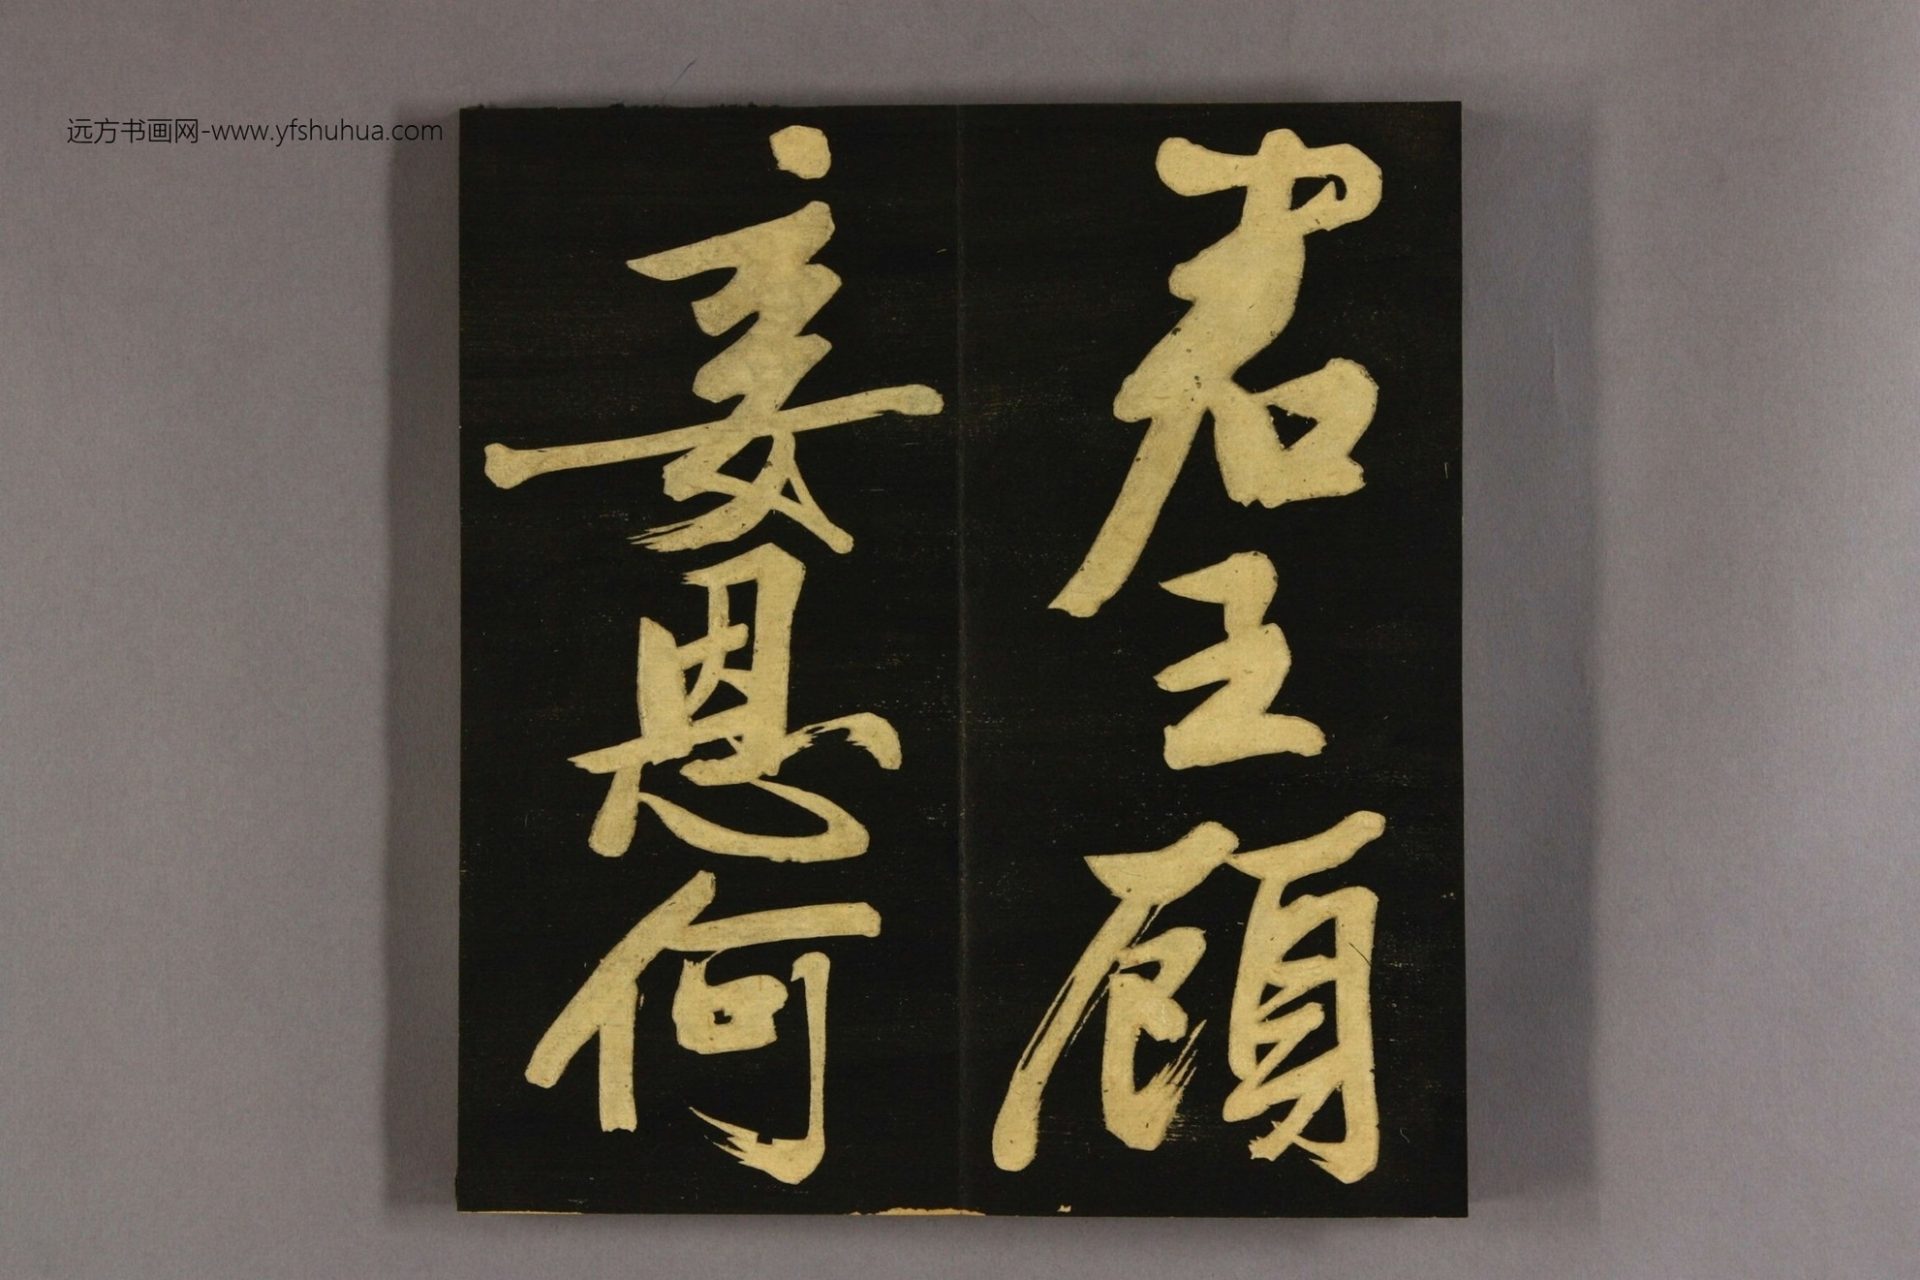 远方书画网-www.yfshuhua.com
君王顧
妾恩何